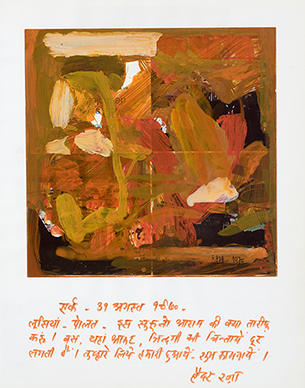 एर्क - ३१ अगस्त १९७०.
लूसियां - पोलत - इस सुकूनो आराम की क्या तारीफ
करूं। बस, यहां आकर, ज़िन्दगी की चिन्तायें दूर
लगती हैं। तुम्हारे लिये हमारी दुआयें - शुभ कामनायें।
हैदर रज़ा